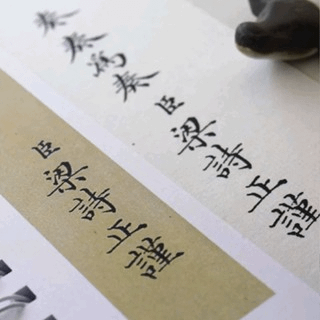 奏奏為奏
臣梁詩正謹
臣梁詩正謹